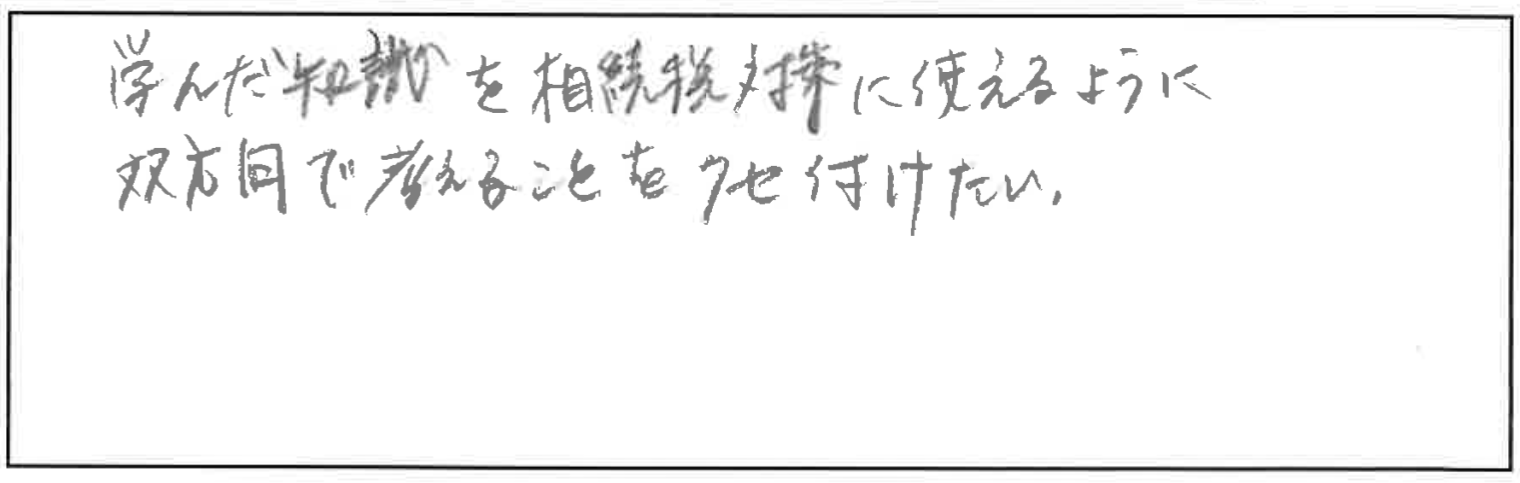 学んだ知識を相続税対策に使えるように
双方向で考えることをクセ付けたい。